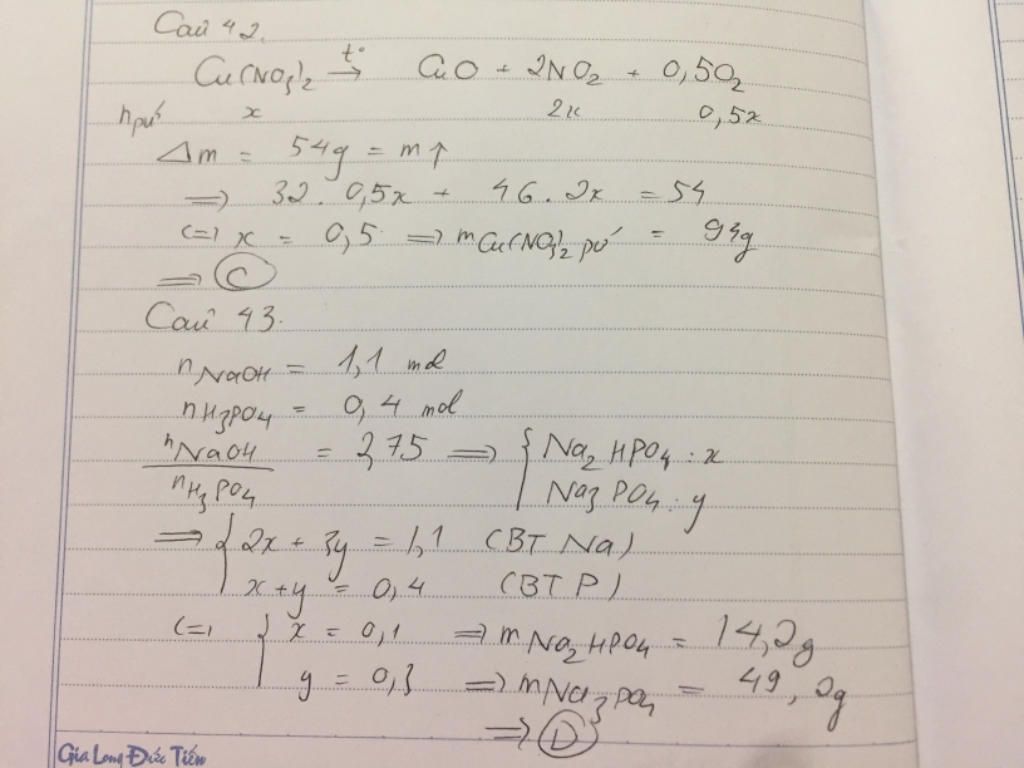 Câu 42.
Cu(NO3)2 t°→ CuO + 2NO2 + 0,5O2
npứ x 2x 0,5x
Δm = 54g = m↑
=> 32. 0,5x + 46. 2x = 54
<=> x = 0,5 => mCu(NO3)2 pứ = 94g
=> C
Câu 43.
nNaOH = 1,1 mol
nH3PO4 = 0,4 mol
nNaOH / nH3PO4 = 2,75 => { Na2HPO4 : x
Na3PO4 : y
=> { 2x + 3y = 1,1 (BT Na)
x + y = 0,4 (BT P)
<=> { x = 0,1 => mNa2HPO4 = 14,2g
y = 0,3 => mNa3PO4 = 49,2g
=> D
Gia Long Đức Tiến